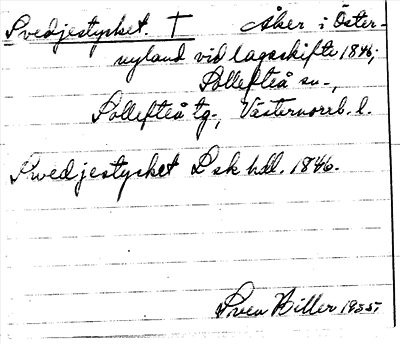 Svedjestycket. † Åker i Öster-
nyland vid lagaskifte 1846;
Sollefteå sn.,
Sollefteå tg., Västernorrl. l.
Swedjestycket L sk hdl. 1846.
Sven Biller 1955.